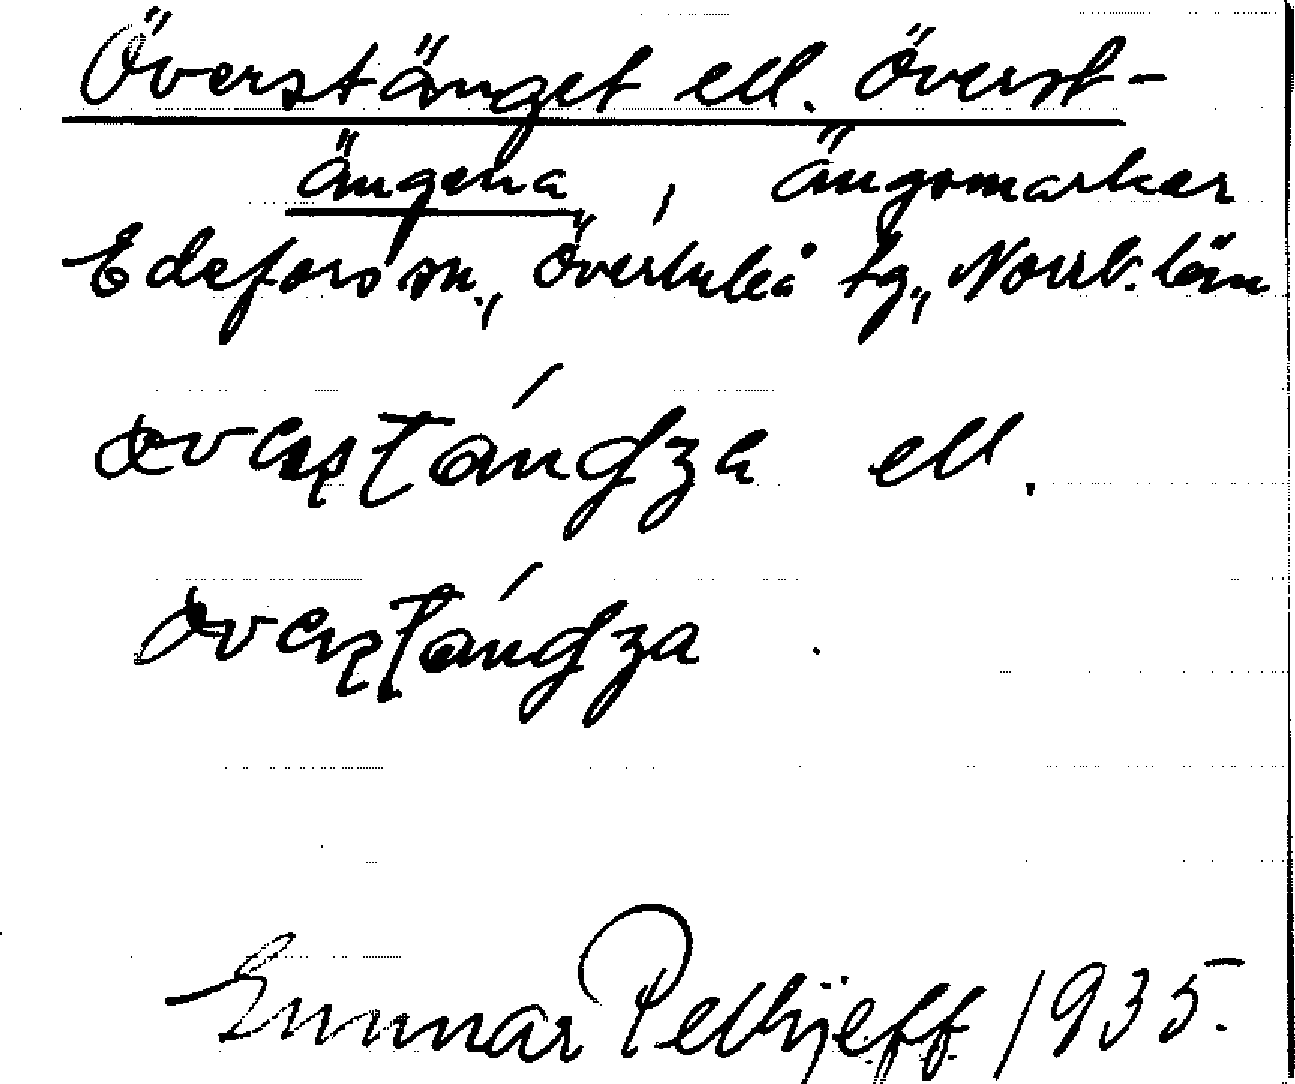 Överstänget ell. överst-
ängena, ängsmarker
Edefors sn., Överluleå tg., Norrb. län
ell.
Gunnar Pellijeff 1935.